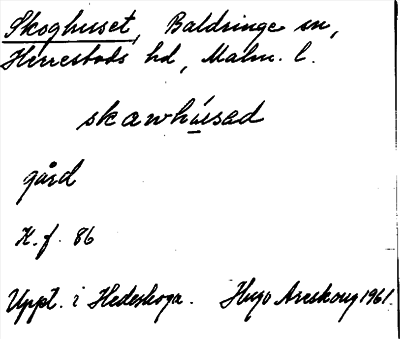 Skoghuset, Baldringe sn,
Herrestads hd, Malm. l.
skawhúsad
gård
K.f. 86
Uppt. i Hedeskoga. Hugo Areskoug 1961.